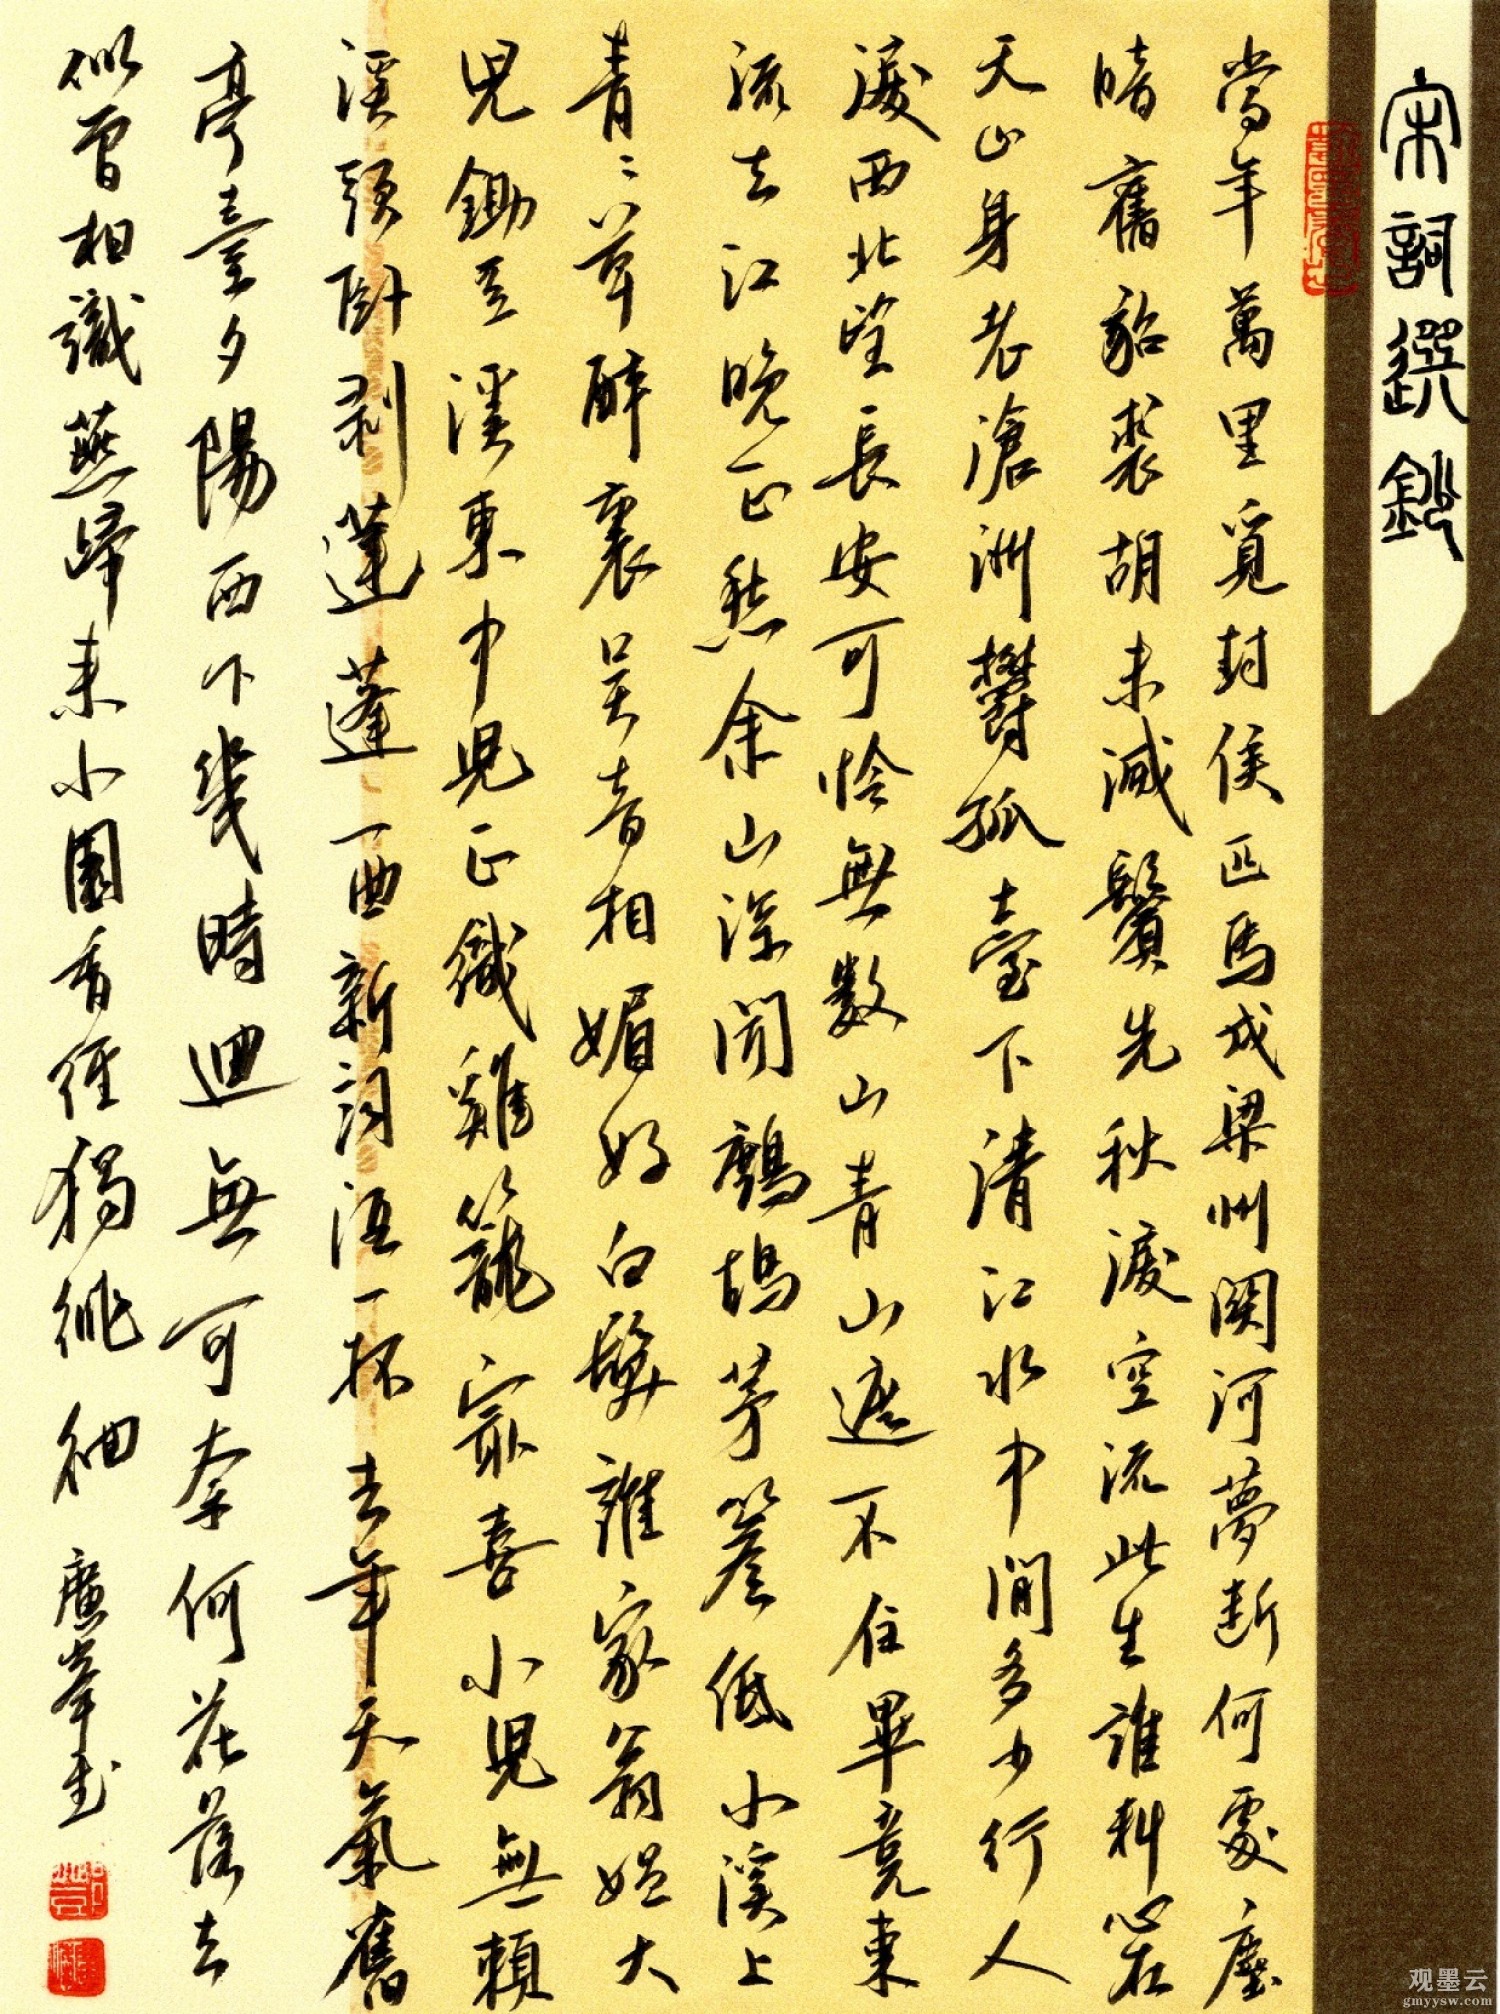 宋詞選鈔
當年萬里覓封侯匹馬戍梁州關河夢断何處塵
暗舊貂裘胡未滅鬢先秋淚空流此生誰料心在
天山身老滄洲鬱孤臺下清江水中間多少行人
淚西北望長安可怜無数山青山遮不住畢竟東
流去江晚正愁余山深聞鷓鴣茅簷低小溪上
青〻草醉裏吳音相媚好白髮誰家翁媪大
兒鋤豆溪東中兒正織雞籠最喜小兒無賴
溪頭卧剥蓮蓬一曲新詞酒一杯去年天氣舊
亭臺夕陽西下幾時迴無可奈何花落去
似曾相識燕歸来小園香徑獨徘徊 廣峯書
观墨云
gmyysw.com